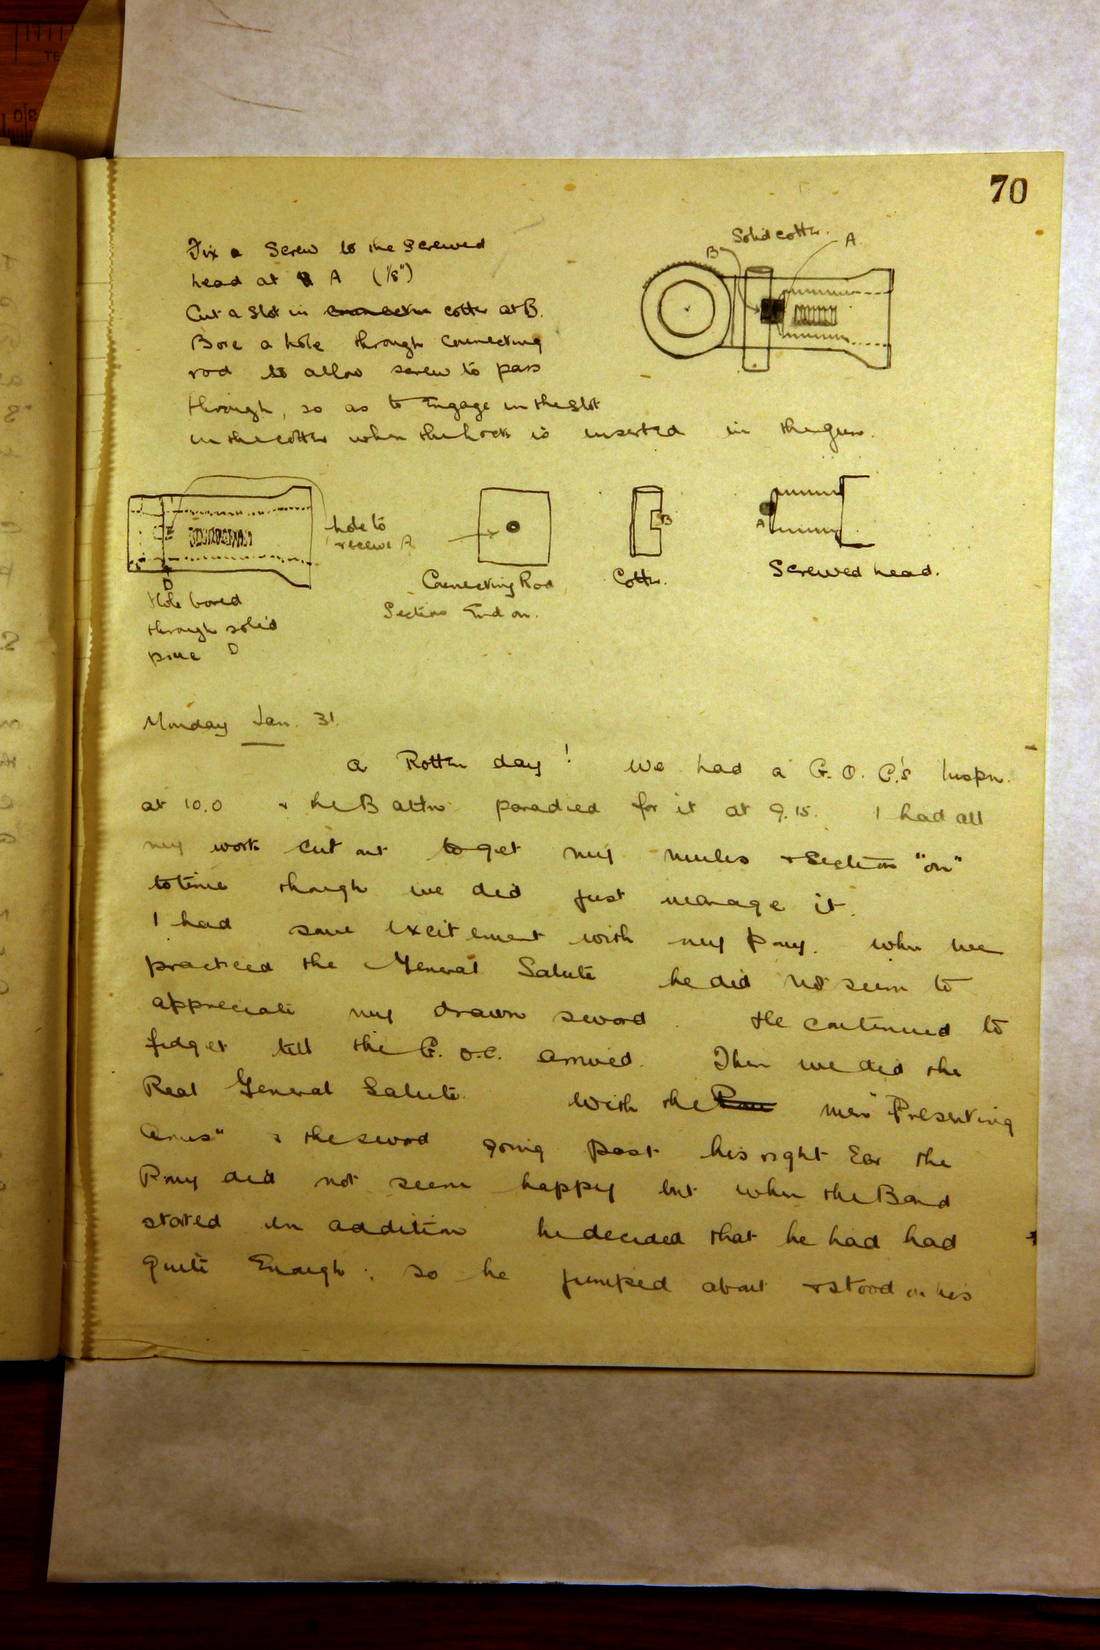 70
Fix a Screw to the Screwed
head at A (1/8")
Cut a Slot in connectin cotter at B.
Bore a hole through Connecting
rod to allow screw to pass
through, so as to Engage in the slot
in the cotter when the lock is inserted in the gun.
Solid cotter.
B
A
hole to
receive A
Connecting Rod
Section End on.
B
Cotter.
A
Screwed head.
D
Hole bored
through solid
piece D
Monday Jan. 31.
A Rotten day! We had a G.O.C.'s Inspn.
at 10.0 & the Battn. paraded for it at 9.15. I had all
my work cut out to get my mules & Section "on"
to time though we did just manage it.
I had some excitement with my Pony. When we
practiced the General Salute he did not seem to
appreciate my drawn sword. He continued to
fidget till the G.O.C. arrived. Then we did the
Real General Salute. With the men "Presenting
Arms" & the sword going past his right Ear the
Pony did not seem happy but when the Band
started in addition he decided that he had had
quite Enough; so he jumped about & stood on his